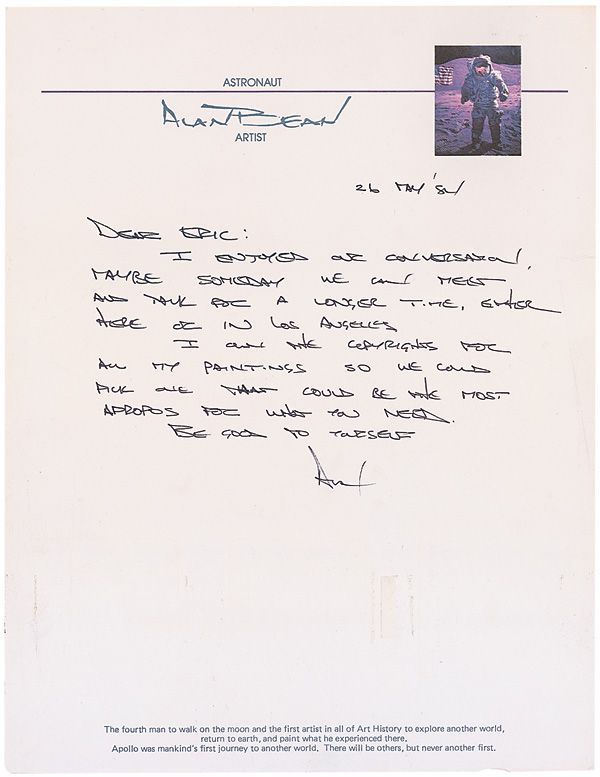 ASTRONAUT
ALAN BEAN
ARTIST
26 MAY '84
DEAR ERIC:
I ENJOYED OUR CONVERSATION,
MAYBE SOMEDAY WE CAN MEET
AND TALK FOR A LONGER TIME, EITHER
HERE OR IN LOS ANGELES
I OWN THE COPYRIGHTS FOR
ALL MY PAINTINGS SO WE COULD
PICK ONE THAT COULD BE THE MOST
APROPOS FOR WHAT YOU NEED.
BE GOOD TO YOURSELF
The fourth man to walk on the moon and the first artist in all of Art History to explore another world,
return to earth, and paint what he experienced there.
Apollo was mankind's first journey to another world. There will be others, but never another first.